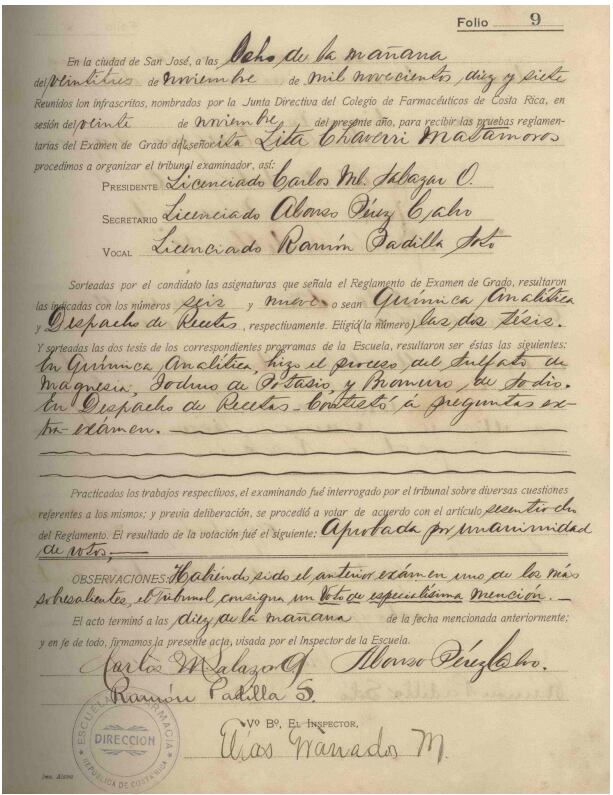 Folio 9
En la ciudad de San José, a las Ocho de la mañana
del veintitres de noviembre de mil novecientos diez y siete
Reunidos lon infrascritos, nombrados por la Junta Directiva del Colegio de Farmacéuticos de Costa Rica, en
sesión del veinte de noviembre del presente año, para recibir las pruebas reglamen-
tarias del Examen de Grado del señorita Lita Chaverri Matamoros
procedimos a organizar el tribunal examinador, así:
PRESIDENTE Licenciado Carlos Ml. Salazar O.
SECRETARIO Licenciado Alonso Pérez Calvo
VOCAL Licenciado Ramón Padilla Soto
Sorteadas por el candidato las asignaturas que señala el Reglamento de Examen de Grado, resultaron
las indicadas con los números seis y nueve o sean Química Analítica
y Despacho de Recetas, respectivamente. Eligió (la número) las dos tésis.
Y sorteadas las dos tesis de los correspondientes programas de la Escuela, resultaron ser éstas las siguientes:
En Química Analítica, hizo el proceso del Sulfato de
Magnesia, Ioduro de Potasio, y Bromuro de Sodio.
En Despacho de Recetas - Contestó á preguntas ex-
tra-exámen.
Practicados los trabajos respectivos, el examinando fué interrogado por el tribunal sobre diversas cuestiones
referentes a los mismos; y previa deliberación, se procedió a votar de acuerdo con el artículo sesentiocho
del Reglamento. El resultado de la votación fué el siguiente: Aprobada por unanimidad
de votos,-
OBSERVACIONES: Habiendo sido el anterior exámen uno de los más
sobresalientes, el Tribunal consigna un voto de especialísima mención.-
El acto terminó a las diez de la mañana de la fecha mencionada anteriormente;
y en fe de todo, firmamos la presente acta, visada por el Inspector de la Escuela.
Carlos M Salazar O Alonso Pérez Calvo.
Ramón Padilla S.
Vº Bº, EL INSPECTOR,
Elías Granados M.
ESCUELA DE FARMACIA
DIRECCION
REPUBLICA DE COSTA RICA
Imp. Alsina